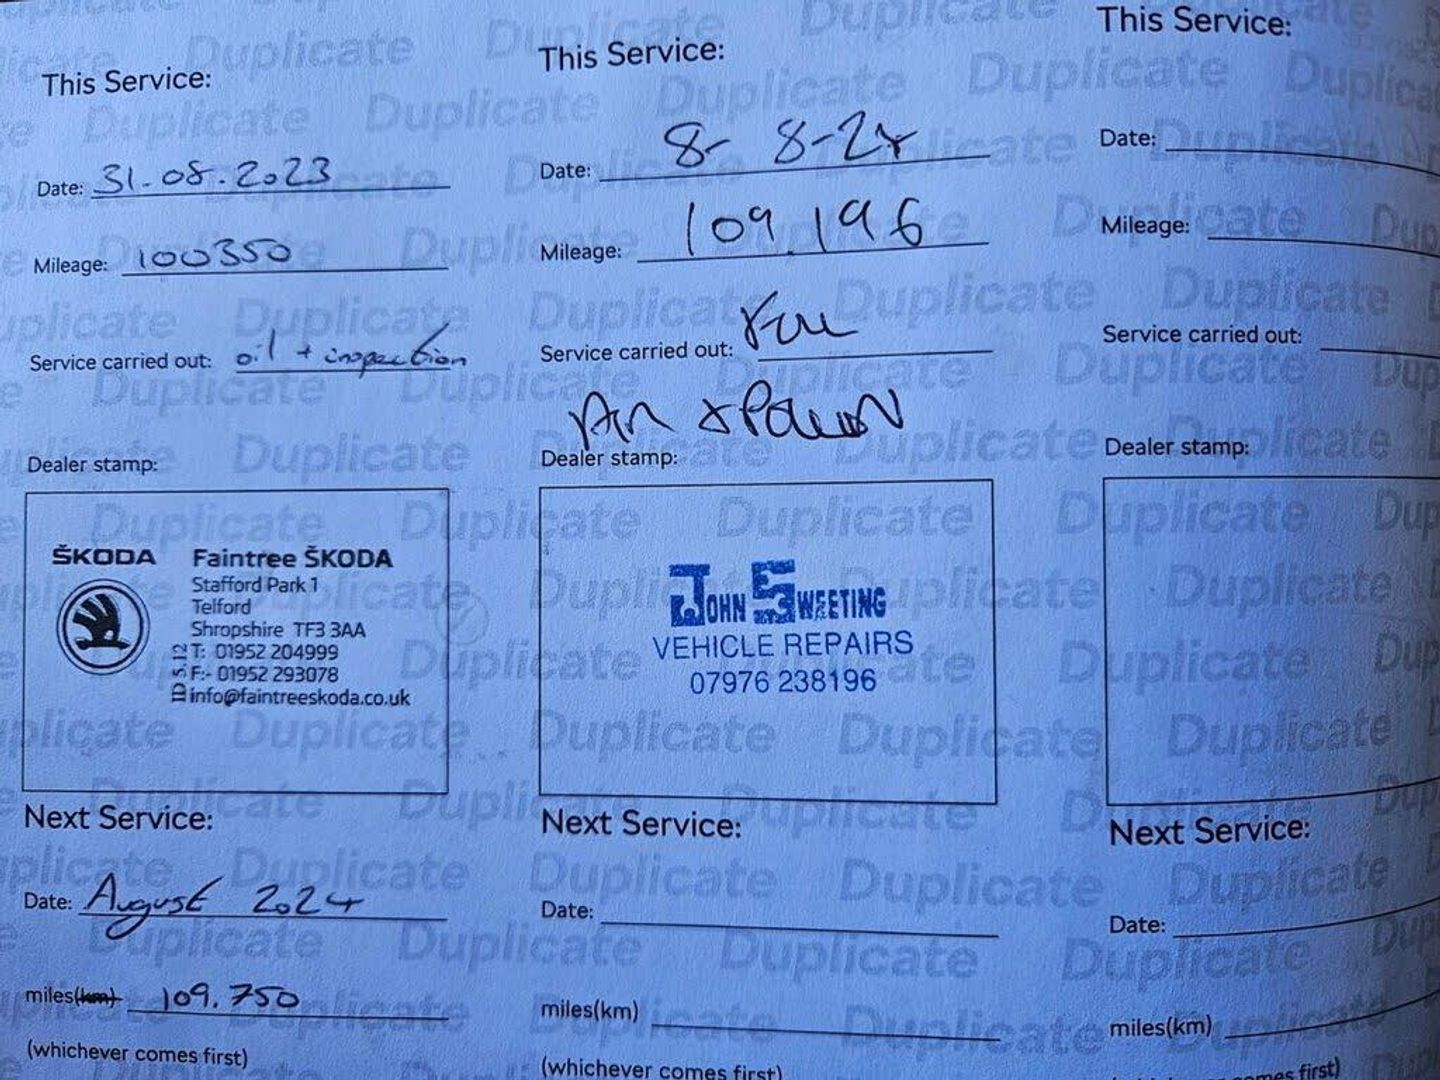 This Service:
Date: 31.08.2023
Mileage: 100350
Service carried out: oil + inspection
Dealer stamp:
ŠKODA
Faintree ŠKODA
Stafford Park 1
Telford
Shropshire TF3 3AA
T: 01952 204999
F:- 01952 293078
info@faintreeskoda.co.uk
Next Service:
Date: August 2024
miles(km) 109.750
(whichever comes first)
This Service:
Date: 8-8-24
Mileage: 109.196
Service carried out:
Dealer stamp:
JOHN SWEETING
VEHICLE REPAIRS
07976 238196
Next Service:
Date:
miles(km)
(whichever comes first)
This Service:
Date:
Mileage:
Service carried out:
Dealer stamp:
Next Service:
Date:
miles(km)
comes first)
Duplicate